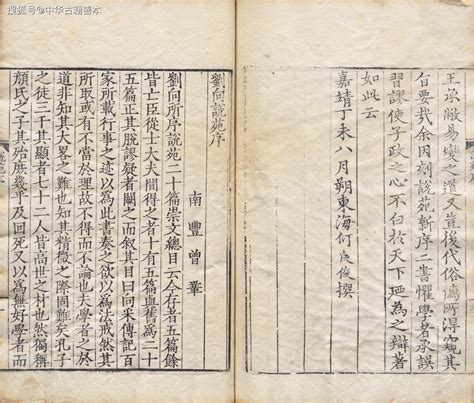 搜狐号@中华古籍善本
王承敝易變之道又豈後代俗儒所得窺其
旨要哉余因刻說苑新序二書懼學者承誤
習謬使子政之心不白於天下廼為之辯著
如此云
嘉靖丁未八月朔東海何良俊撰
劉向說苑序
南豐曾鞏
劉向所序說苑二十篇崇文總目云今存者五篇餘
皆亡臣從士大夫間得之者十有五篇與舊為二十
五篇正其脫謬疑者闕之而敘其目曰向采傳記百
家所載行事之迹以為此書奏之欲以為法戒然其
所取或有不當於理故不得而不論也夫學者之於
道非知其大略之難也知其精微之際固難矣孔子
之徒三千其顯者七十二人皆高世之材也然獨稱
顏氏之子其殆庶幾乎及回死又以為無好學者而